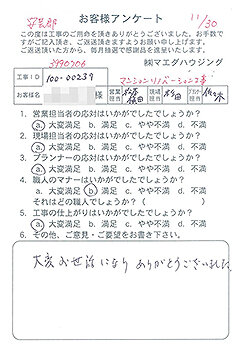 お客様アンケート
11/30
この度は工事のご用命を頂きありがとうございました。お手数で
すがご記入頂き、ご返送頂きますようお願い申し上げます。
ご返送頂いた方から、毎月抽選で感謝品を進呈いたします。
㈱マエダハウジング
工事ID 100-00239 マンションリノベーション工事
お客様名 様 営業担当 現場担当 杉田 プランナー担当
1. 営業担当者の応対はいかがでしたでしょうか？
a. 大変満足 b. 満足 c. やや不満 d. 不満
2. 現場担当者の応対はいかがでしたでしょうか？
a. 大変満足 b. 満足 c. やや不満 d. 不満
3. プランナーの応対はいかがでしたでしょうか？
a. 大変満足 b. 満足 c. やや不満 d. 不満
4. 職人のマナーはいかがでしたでしょうか？
a. 大変満足 b. 満足 c. やや不満 d. 不満
それはどの職人でしょうか？（ ）
5. 工事の仕上がりはいかがでしたでしょうか？
a. 大変満足 b. 満足 c. やや不満 d. 不満
6. その他、ご意見・ご要望をお書き下さい。
大変お世話になり ありがとうございました。